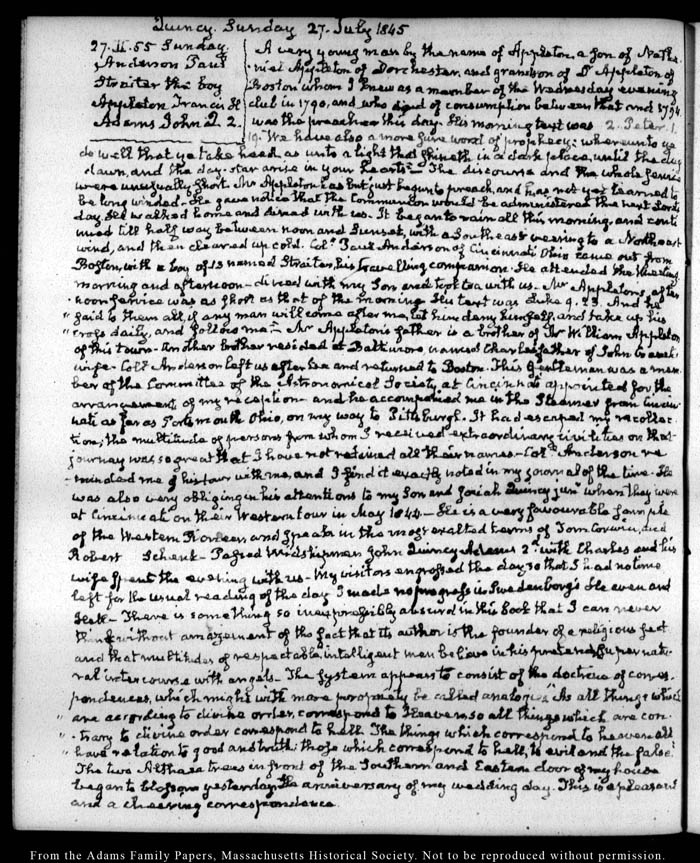 Quincy. Sunday 27. July 1845
27. II. 55 Sunday.
Anderson Paul
Straiter the boy
Appleton Francis H
Adams John Q. 2.
A very young man by the name of Appleton, a Son of Natha-
niel Appleton of Dorchester, and grandson of Dr Appleton of
Boston whom I knew as a member of the Wednesday evening
club in 1790, and who died of consumption between that and 1794
was the preacher this day. His morning text was 2. Peter. 1.
19. We have also a more sure word of prophecy: whereunto ye
do well that ye take heed, as unto a light that shineth in a dark place, until the day
dawn, and the day-star arise in your hearts. The discourse and the whole service
were unusually short. Mr Appleton has but just begun to preach, and has not yet learned to
be long winded. He gave notice that the Communion would be administered the next Lord's
day. He walked home and dined with us. It began to rain all this morning, and conti-
nued till half way between noon and Sunset, with a Southeast veering to a Northeast
wind, and then cleared up cold. Coll. Paul Anderson of Cincinnati Ohio came out from
Boston, with a boy of 13 named Straiter, his travelling companion. He attended the Meeting
morning and afternoon - dined with my Son and took tea with us. Mr Appleton's after-
noon service was as short as that of the morning. His text was Luke 9. 23. And he
said to them all, if any man will come after me, let him deny himself, and take up his
" cross daily, and follow me - Mr Appleton's father is a brother of Mr William Appleton
of this town. Another brother resided at Baltimore, named Charles father of John's
wife. Coll. Anderson left us after tea and returned to Boston. This Gentleman was a mem-
ber of the Committee of the Astronomical Society at Cincinnati appointed for the
arrangement of my reception - and he accompanied me in the Steamer from Cincin-
nati as far as Portsmouth Ohio, on my way to Pittsburgh. It had escaped my recollec-
tion, the multitude of persons from whom I received extraordinary civilities on that
journey was so great that I have not retained all their names - Coll. Anderson re-
minded me of his tour with me, and I find it exactly noted in my journal of the time. He
was also very obliging in his attentions to my Son and Josiah Quincy junr when they were
at Cincinnati on their Western tour in May 1844 - He is a very favourable sample
of the Western and speaks in the most exalted terms of Tom Corwin, and
Robert Schenk - Passed Midshipman John Quincy Adams 2d. with Charles and his
wife spent the evening with us - My visitors engrossed the day so that I had no time
left for the usual reading of the day. I made no progress in Swedenborg's Heaven and
Hell - There is something so inexpressibly absurd in this book that I can never
think without amazement of the fact that its author is the founder of a religious sect
and that multitudes of respectable, intelligent men believe in his pretended Supernatu-
ral intercourse with angels - The System appears to consist of the doctrine of corres-
pondences, which might with more propriety be called analogies, "As all things which
" are according to divine order, correspond to Heaven, so all things which are con-
" trary to divine order correspond to hell. The things which correspond to heaven all
" have relation to good and truth: those which correspond to hell, to evil and the false."
The two Althaea trees in front of the Southern and Eastern door of my house
began to blossom yesterday, the anniversary of my wedding day. This is a pleasant
and a cheering correspondence.
From the Adams Family Papers, Massachusetts Historical Society. Not to be reproduced without permission.